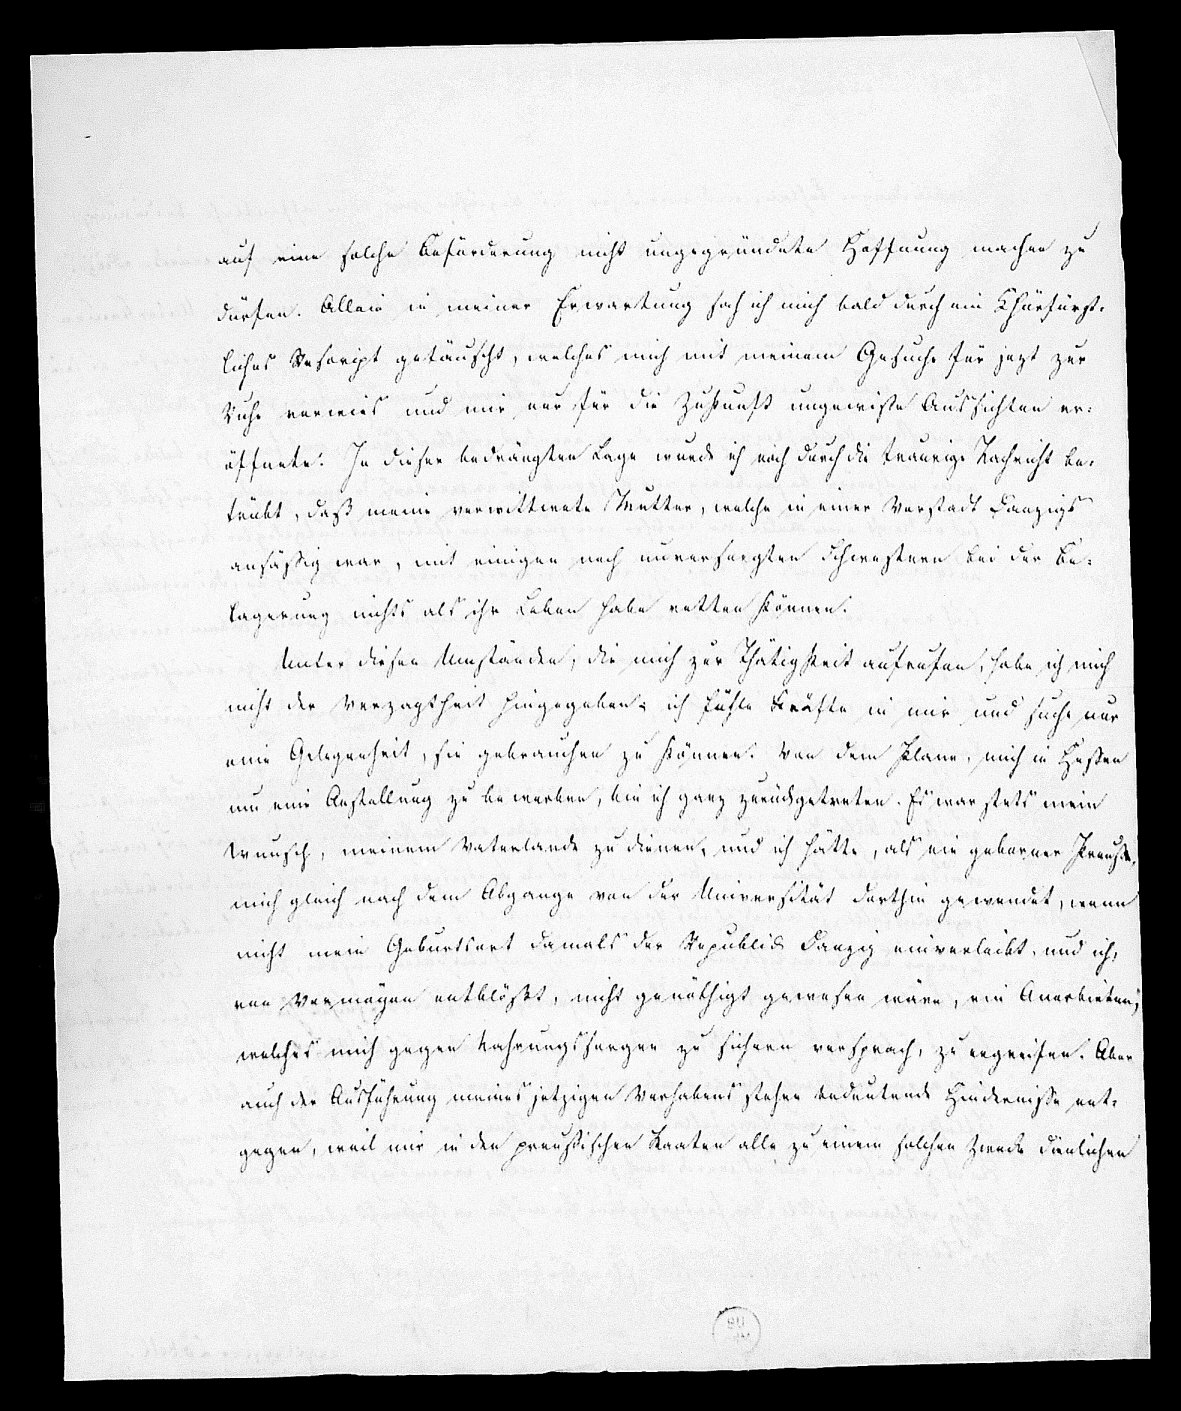 auf eine solche Beförderung nicht ungegründete Hoffnung machen zu
dürfen. Allein in meiner Erwartung sah ich mich bald durch ein Churfürst-
liches Rescript getäuscht, welches mich mit meinem Gesuche für jezt zur
Ruhe verwies und mir nur für die Zukunft ungewisse Aussichten er-
öffnete. In dieser bedrängten Lage wurde ich noch durch die traurige Nachricht be-
trübt, daß meine verwittwete Mutter, welche in einer Vorstadt Danzigs
ansäßig war, mit einigen noch unversorgten Schwestern bei der Be-
lagerung nichts als ihr Leben habe retten können.
Unter diesen Umständen, die mich zur Thätigkeit aufrufen, habe ich mich
nicht der Verzagtheit hingegeben; ich fühle Kräfte in mir und suche nur
eine Gelegenheit, sie gebrauchen zu können. Von dem Plane, mich in Hessen
um eine Anstellung zu bewerben, bin ich ganz zurückgetreten. Es war stets mein
Wunsch, meinem Vaterlande zu dienen, und ich hätte, als ein geborner Preuße,
mich gleich nach dem Abgange von der Universität dorthin gewendet, wenn
nicht mein Geburtsort damals der Republik Danzig einverleibt, und ich,
von Vermögen entblößt, nicht genöthigt gewesen wäre, ein Anerbieten,
welches mich gegen Nahrungssorgen zu sichern versprach, zu ergreifen. Aber
auch der Ausführung meines jetzigen Vorhabens stehen bedeutende Hindernisse ent-
gegen, weil mir in den preußischen Staaten alle zu einem solchen Zwecke dienlichen